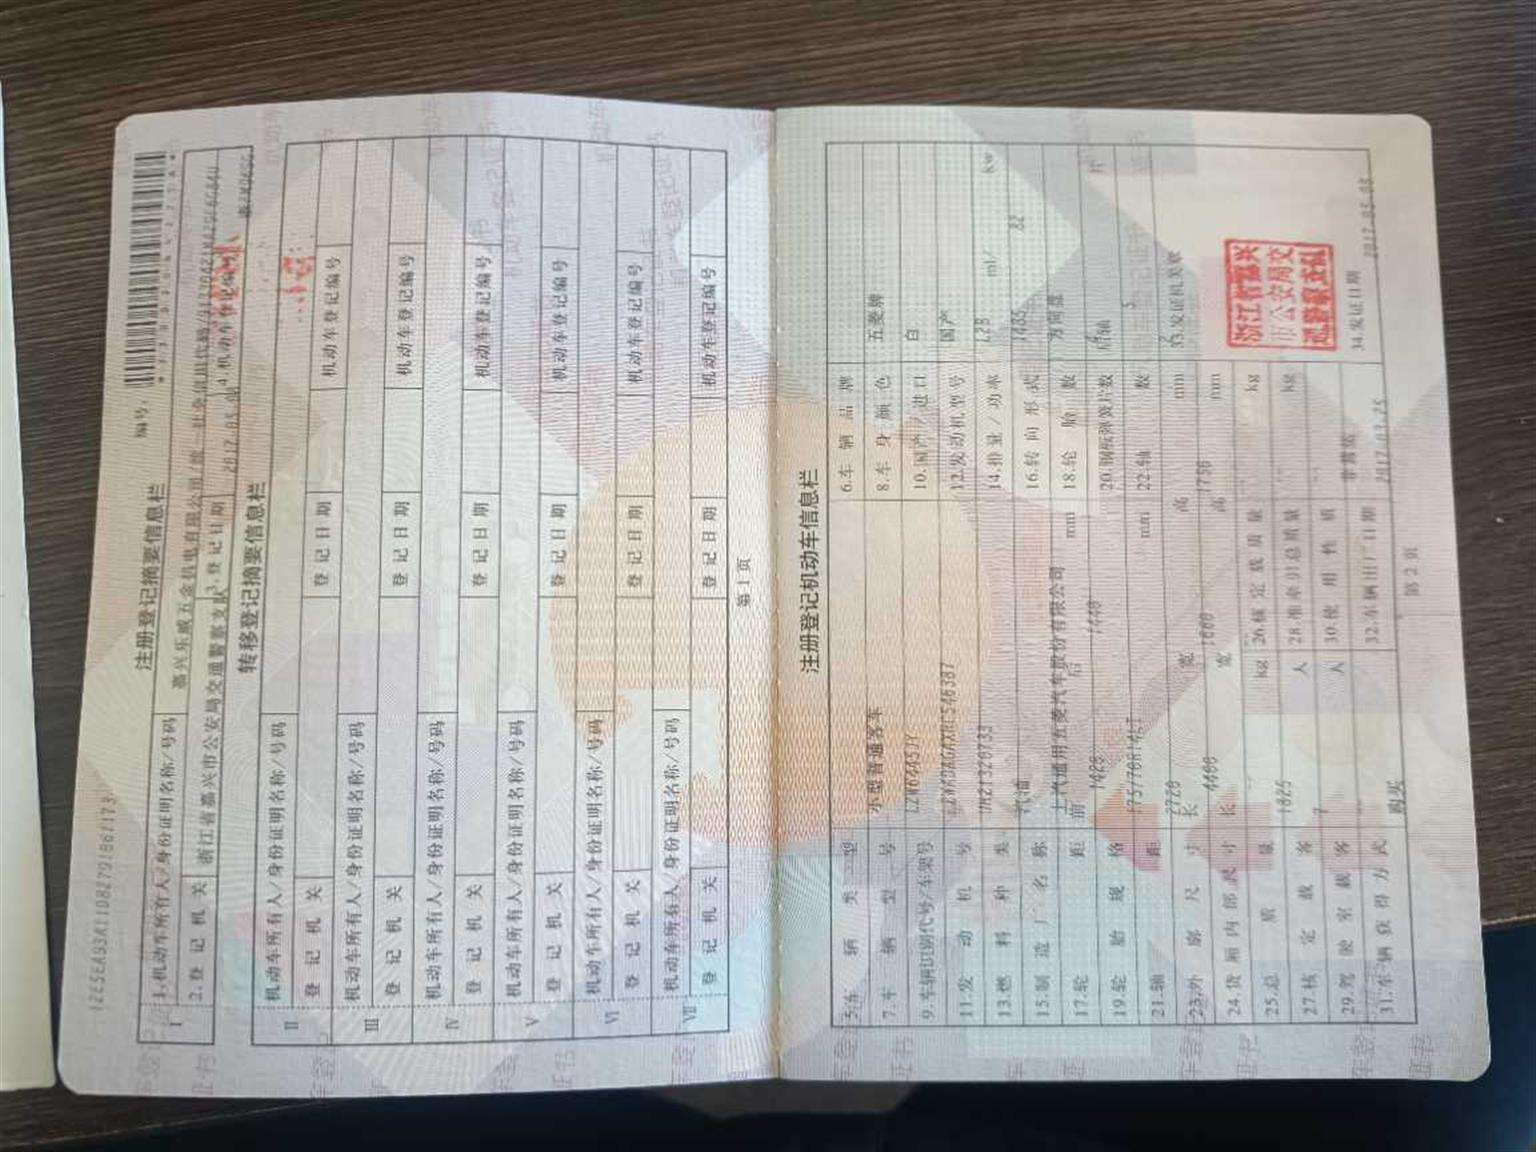 注册登记摘要信息栏
编号
Ⅰ
1.机动车所有人/身份证明名称/号码 嘉兴乐威五金机电有限公司/统一社会信用代码/
2.登记机关 浙江省嘉兴市公安局交通警察支队 3.登记日期 2017-05-08 4.机动车登记编号
转移登记摘要信息栏
Ⅱ
机动车所有人/身份证明名称/号码
登记机关 登记日期 机动车登记编号
Ⅲ
机动车所有人/身份证明名称/号码
登记机关 登记日期 机动车登记编号
Ⅳ
机动车所有人/身份证明名称/号码
登记机关 登记日期 机动车登记编号
Ⅴ
机动车所有人/身份证明名称/号码
登记机关 登记日期 机动车登记编号
Ⅵ
机动车所有人/身份证明名称/号码
登记机关 登记日期 机动车登记编号
Ⅶ
机动车所有人/身份证明名称/号码
登记机关 登记日期 机动车登记编号
第1页
注册登记机动车信息栏
5.车辆类型 小型普通客车 6.车辆品牌 五菱牌
7.车辆型号 LZW6449JY 8.车身颜色 白
9.车辆识别代号/车架号 10.国产/进口 国产
11.发动机号 12.发动机型号 L2B
13.燃料种类 汽油 14.排量/功率 1485 ml/ 82 kw
15.制造厂名称 上汽通用五菱汽车股份有限公司 16.转向形式 方向盘
17.轮距 前 1420 后 1440 mm 18.轮胎数 4
19.轮胎规格 175/70R14LT 20.钢板弹簧片数 后轴 5 片
21.轴距 2720 mm 22.轴数 2
23.外廓尺寸 长 4400 宽 1680 高 1750 mm 33.发证机关章
24.货厢内部尺寸 长 宽 高 mm
浙江省嘉兴
市公安局交
通警察支队
25.总质量 1825 kg 26.核定载质量 kg
27.核定载客 7 人 28.准牵引总质量 kg
29.驾驶室载客 人 30.使用性质 非营运
31.车辆获得方式 购买 32.车辆出厂日期 2017-03-25 34.发证日期 2017-05-08
第2页